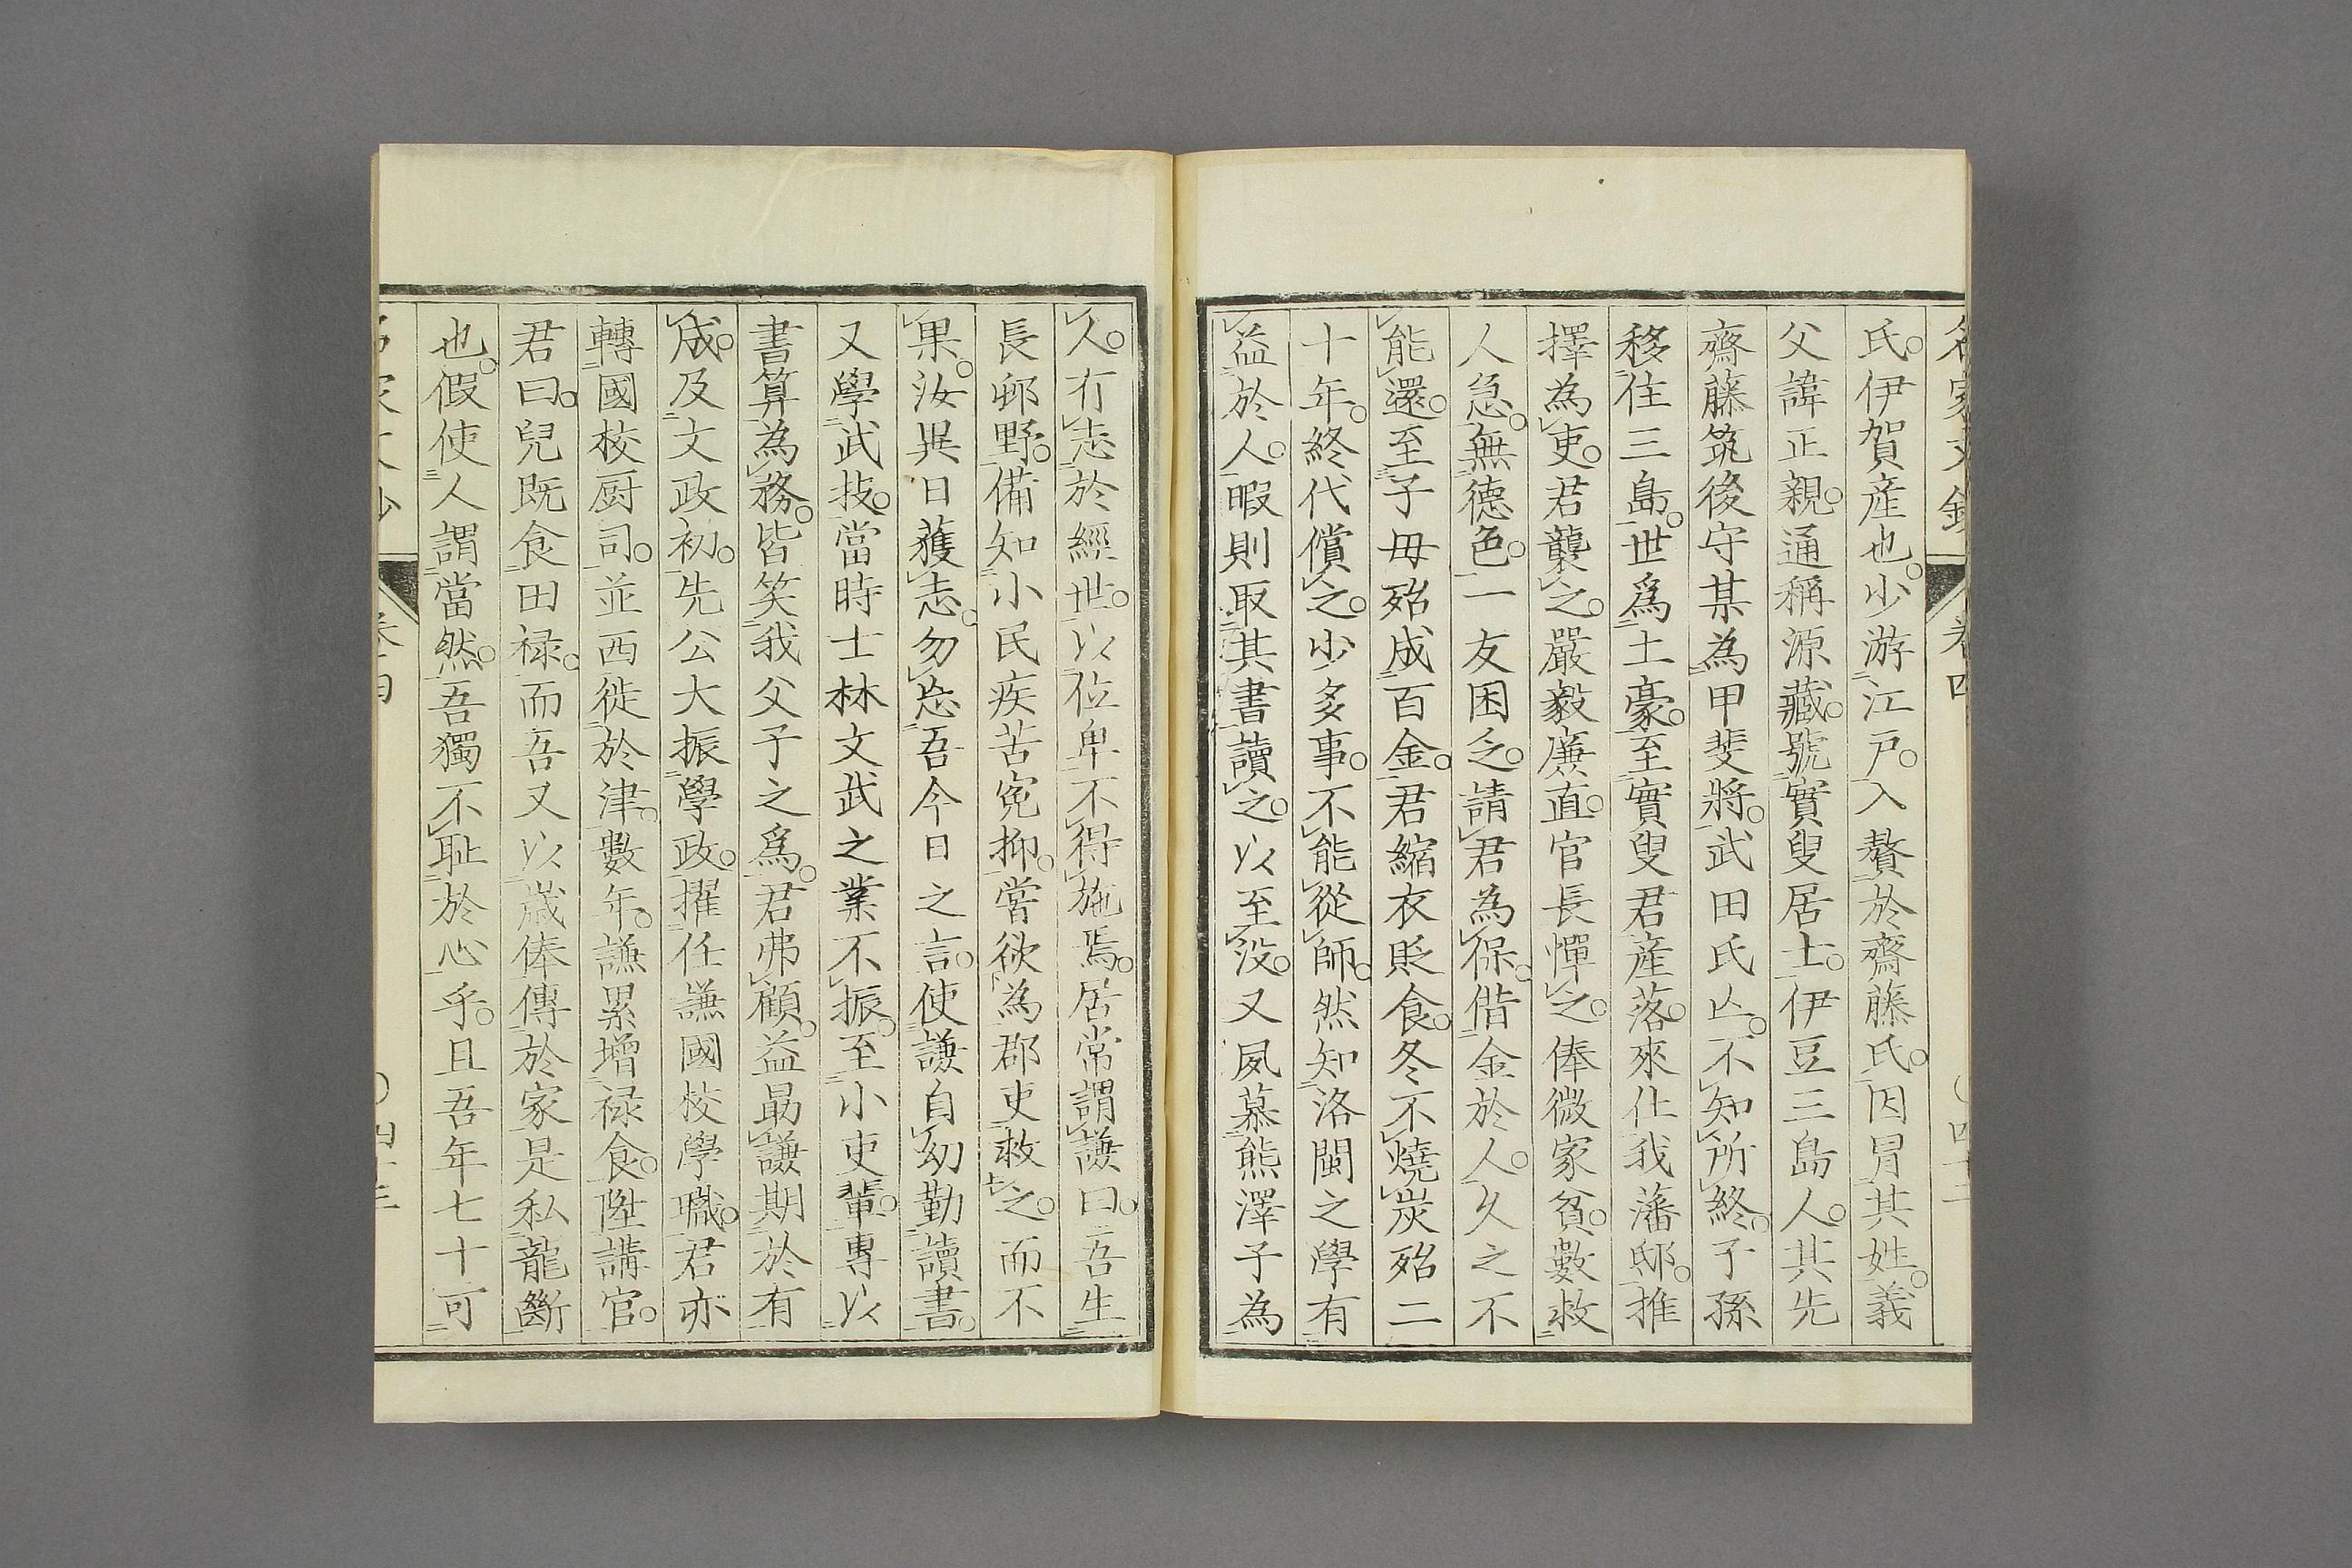 氏。伊賀産也。少游江戸。入贅於齋藤氏。因冒其姓。義
父諱正親。通稱源藏。號實叟居士。伊豆三島人。其先
齋藤筑後守某為甲斐將。武田氏亡。不知所終。子孫
移住三島。世爲土豪。至實叟君産落。來仕我藩邸。推
擇為吏。君襲之。嚴毅廉直。官長憚之。俸微家貧。數救
人急。無德色。一友困乏。請君為保。借金於人。久之不
能還。至子母殆成百金。君縮衣貶食。冬不燒炭殆二
十年。終代償之。少多事。不能從師。然知洛閩之學有
益於人。暇則取其書讀之。以至没。又夙慕熊澤子為
人。有志於經世。以位卑不得施焉。居常謂謙曰。吾生
長邨野。備知小民疾苦寃抑。嘗欲為郡吏救之。而不
果。汝異日獲志。勿忘吾今日之言。使謙自幼勤讀書。
又學武技。當時士林文武之業不振。至小吏輩。專以
書算為務。皆笑我父子之爲。君弗顧。益勗謙期於有
成。及文政初。先公大振學政。擢任謙國校學職。君亦
轉國校厨司。並西徙於津。數年。謙累增禄食。陞講官。
君曰。兒既食田禄。而吾又以歳俸傳於家是私龍斷
也。假使人謂當然。吾獨不耻於心乎。且吾年七十可